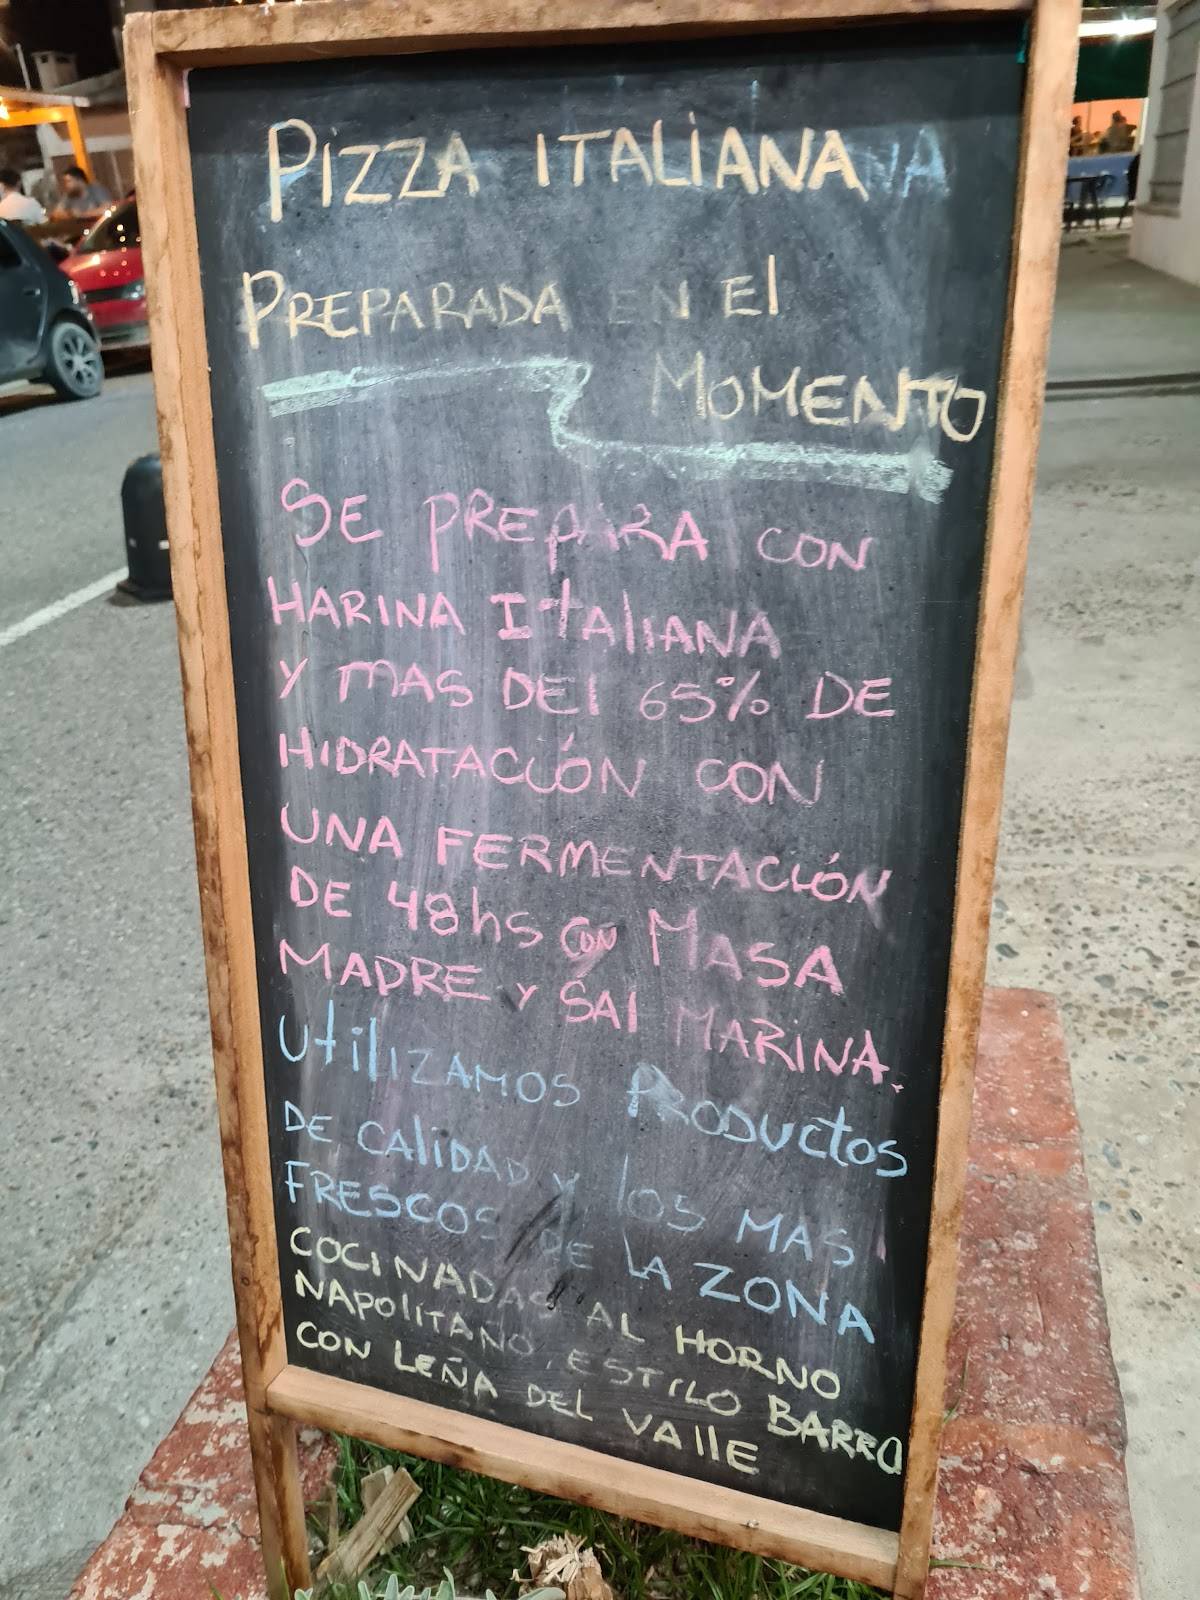 PiZZA ITALiANA
PREPARADA EN El
MOMENTO
SE PREPARA CON
HARINA ItAlIANA
Y MAS DEl 65% DE
HIDRATACIÓN CON
UNA FERMENTACIÓN
DE 48hs CON MASA
MADRE Y SAl MARINA.
UtilIZAMOS PRODUCtOS
DE CAlIDAD Y lOS MAS
FRESCOS DE LA ZONA
COCINADAS AL HORNO
NAPOlITANO, ESTILO BARRO
CON LEÑA DEL VAllE